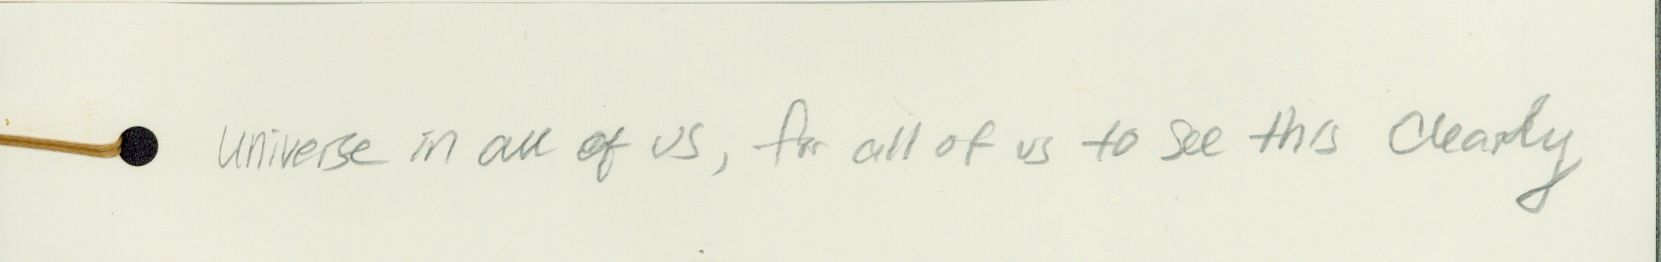 Universe in all of us, for all of us to see this clearly